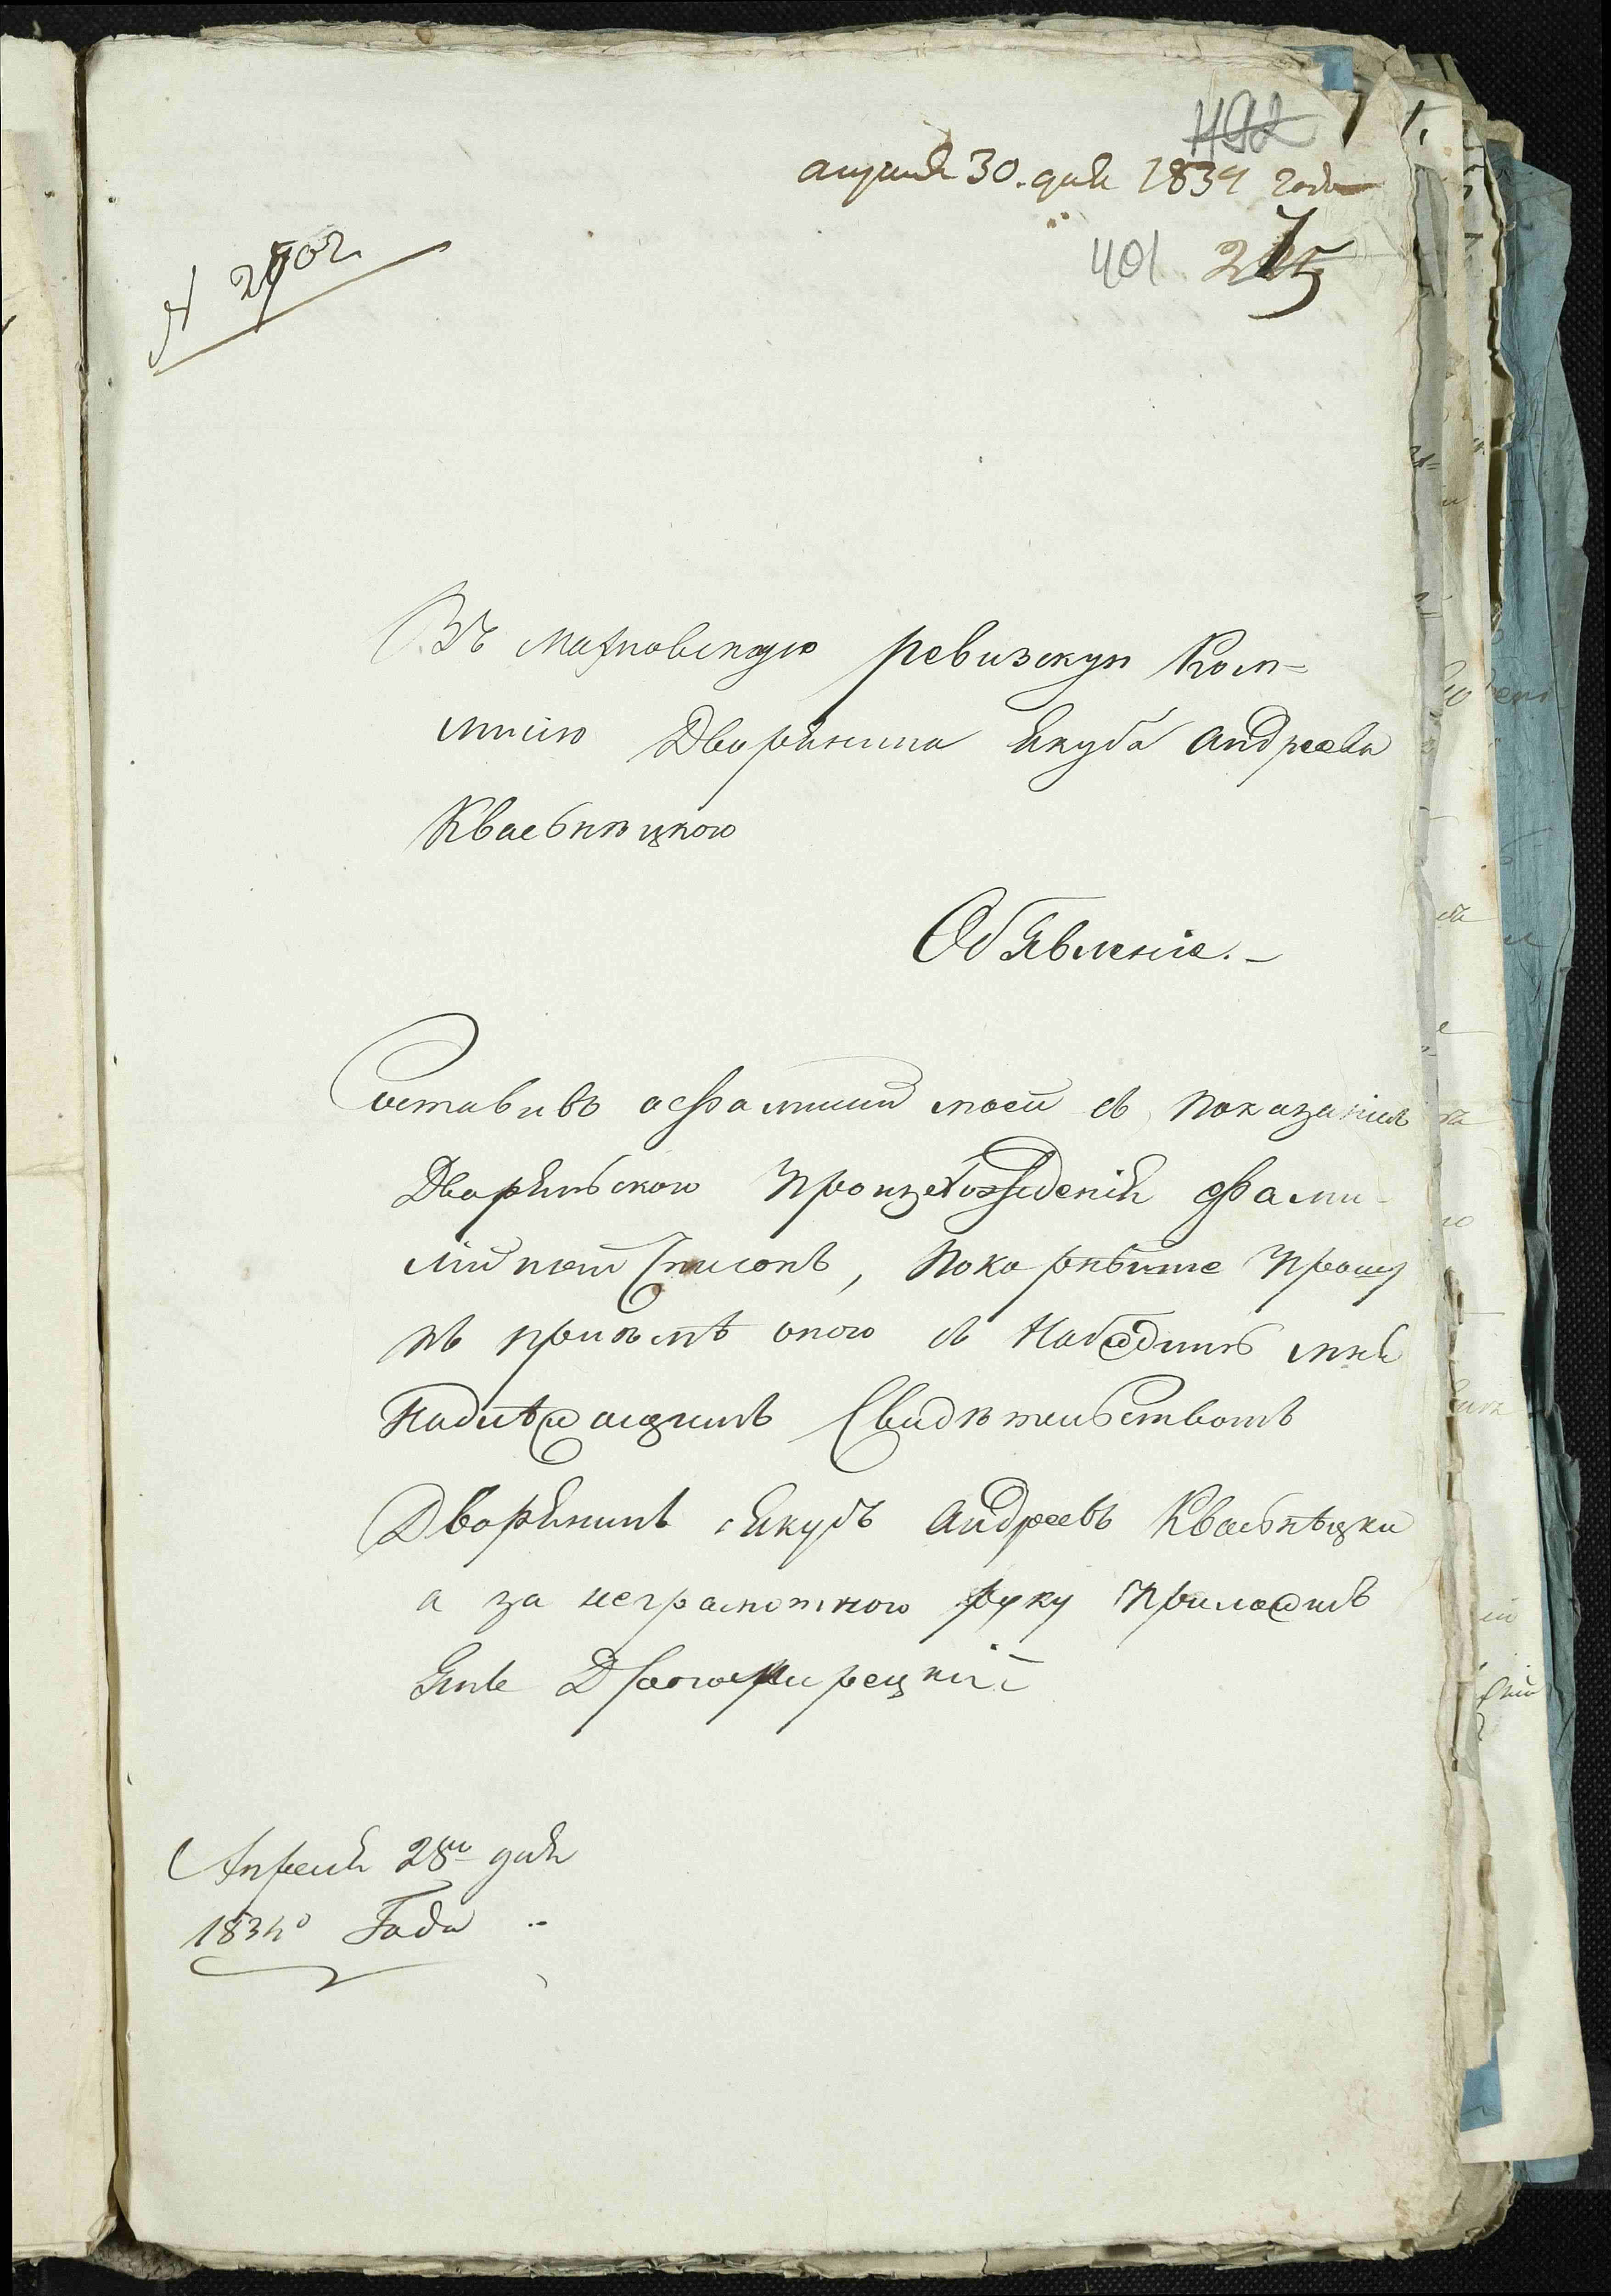 апреля 30. дня 1834 года
401
№ 2702
Въ Махновскую ревизскую Ком=
мисію Дворянина Якуба Андреева
Квасьнѣцкого
Объявленіе.–
Составивъ о фамиліи моей съ показаніемъ
Дворяньского произхождѣнія фами-
лійный Списокъ, покорнѣйше прошу
къ пріемѣ оного съ набѣдить мнѣ
надлѣжащимъ Свидѣтельствомъ
Дворянинъ Якубъ Андреевъ Квасьнѣцки
а за неграмотного руку приложилъ
Апреля 28го дня
1834о Года